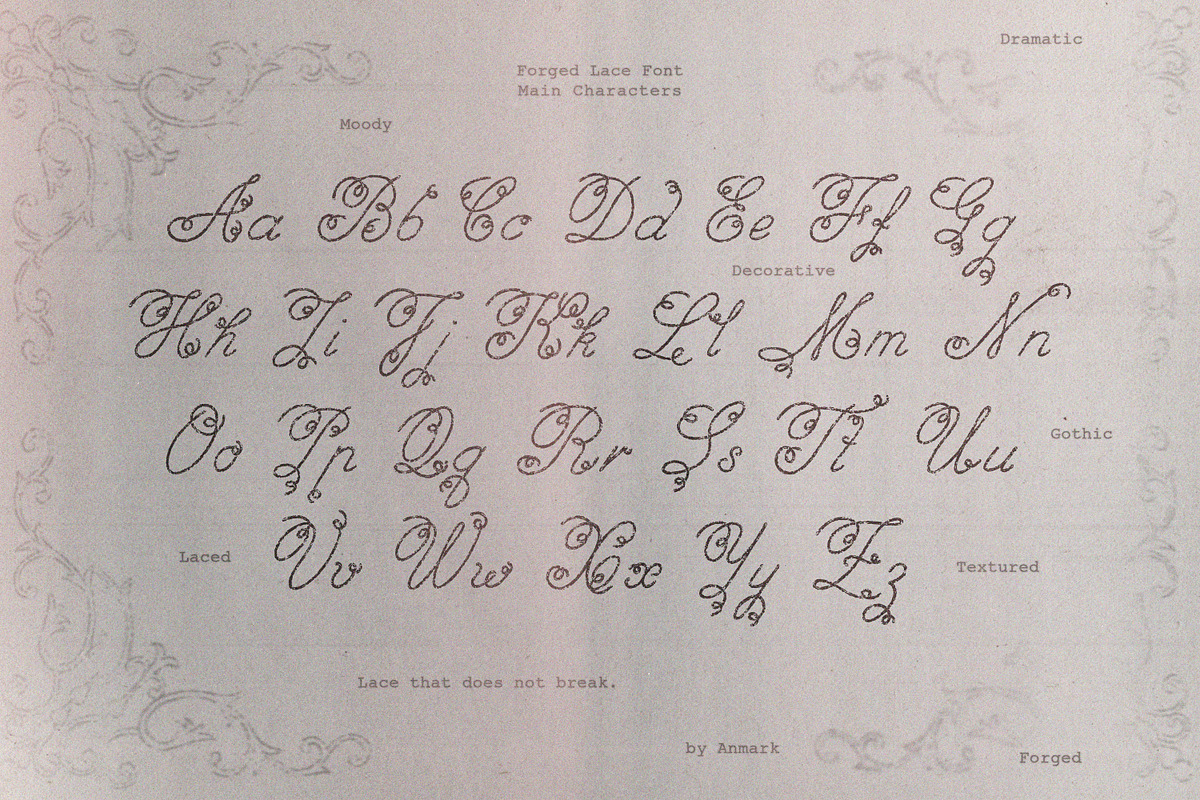 Dramatic
Forged Lace Font
Main Characters
Moody
Aa Bb Cc Dd Ee Ff Gg
Decorative
Hh Ii Jj Kk Ll Mm Nn
Oo Pp Qq Rr Ss Tt Uu
Gothic
Vv Ww Xx Yy Zz
Laced
Textured
Lace that does not break.
by Anmark
Forged